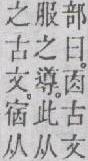 部曰。㐁古文
服之導。此从
之古文。宿从